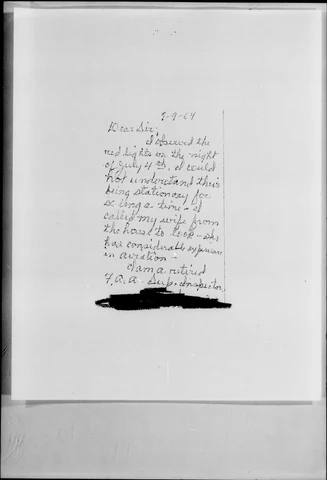 7-9-64
Dear Sir;
I observed the
red lights on the night
of July 4th. I could
not understand their
being stationary for
so long a time - I
called my wife from
the house to look - she
has considerable experience
in aviation -
I am a retired
F.A.A. Sup. Inspector,